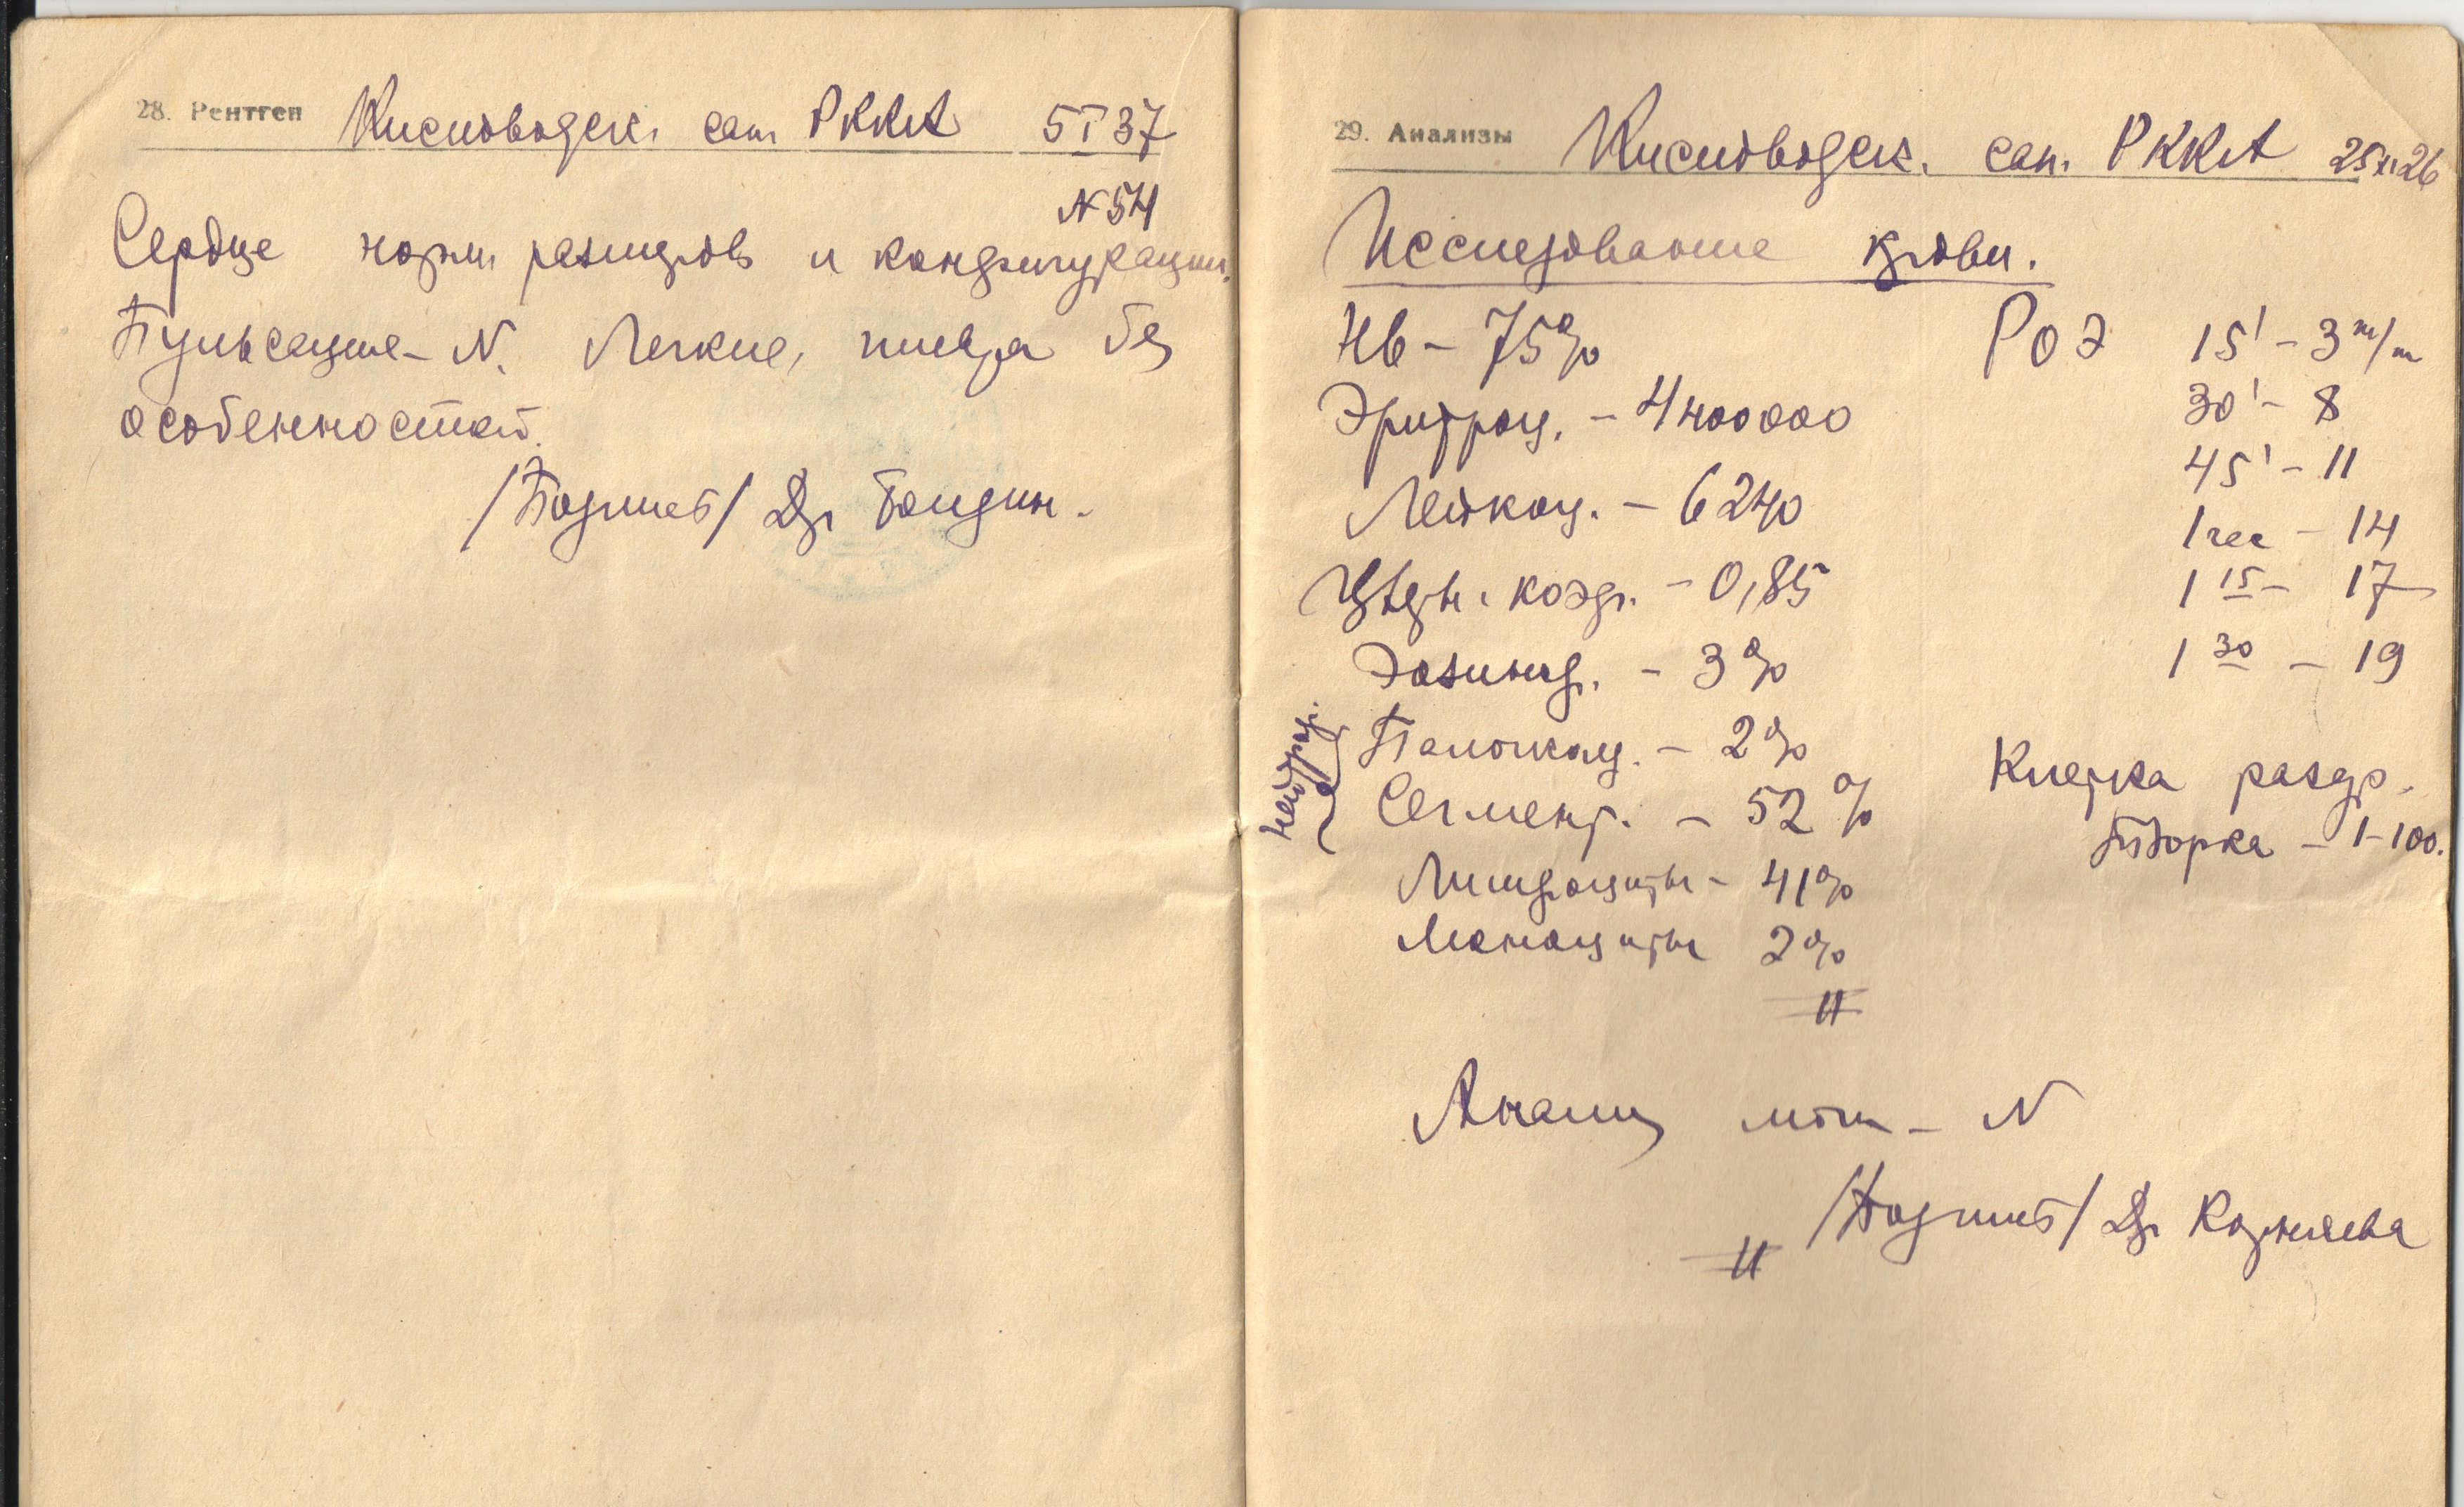 28. Рентген Кисловодск. сан. РККА 5 I 37
N 54
Сердце норм. размеров и конфигурации.
Пульсация – N. Легкие, плевра без
особенностей.
/Подпись/ Др
29. Анализы Кисловодск. сан. РККА 25 XII 26
Исследование крови.
Нв – 75%
Эритроц. – 4400000
Лейкоц. – 6240
Цветн. коэф. – 0,85
Эозиноф. – 3%
нейтроф.
Палочкоц. – 2%
Сегмент. – 52%
Лимфоциты – 41%
Моноциты 2%
РОЭ 15' – 3 m/m
30' – 8
45' – 11
1 час – 14
1 15 – 17
1 30 – 19
Клетка раздр.
Тюрка – 1–100.
Анализ мочи – N
/Подпись/ Др